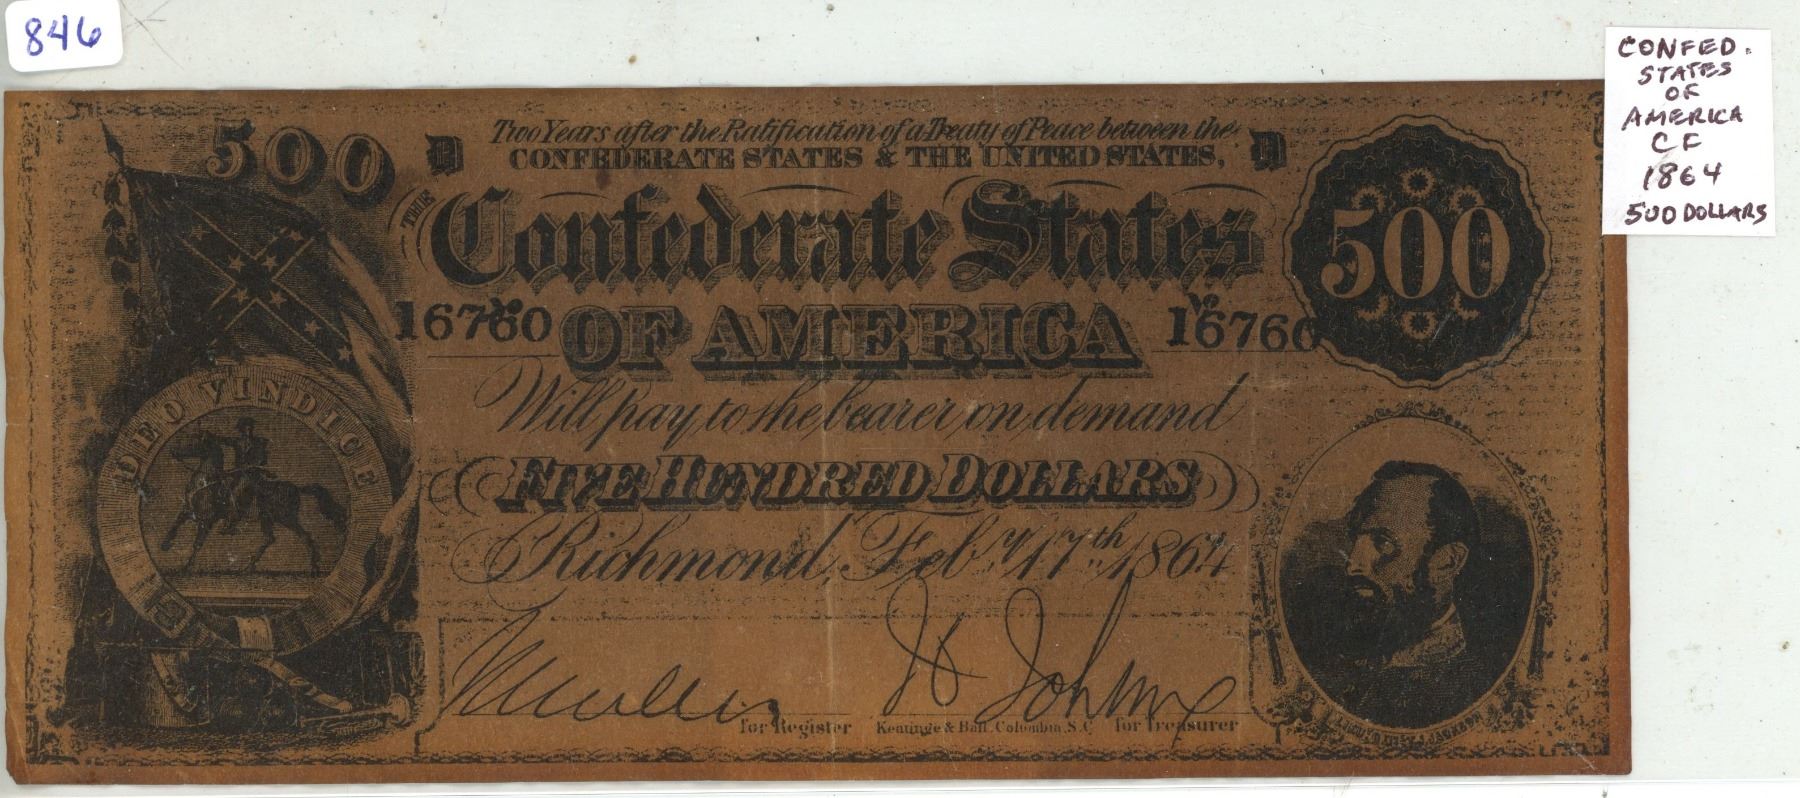 846
CONFED.
STATES
OF
AMERICA
CF
1864
500 DOLLARS
500
D Two Years after the Ratification of a Treaty of Peace between the D
CONFEDERATE STATES & THE UNITED STATES,
THE
Confederate States
500
16760 OF AMERICA 16760
Will pay to the bearer on demand
DEO VINDICE
FIVE HUNDRED DOLLARS
Richmond, Feby. 17th 1864
H Johnson
for Register Keatinge & Ball, Columbia, S.C. for Treasurer